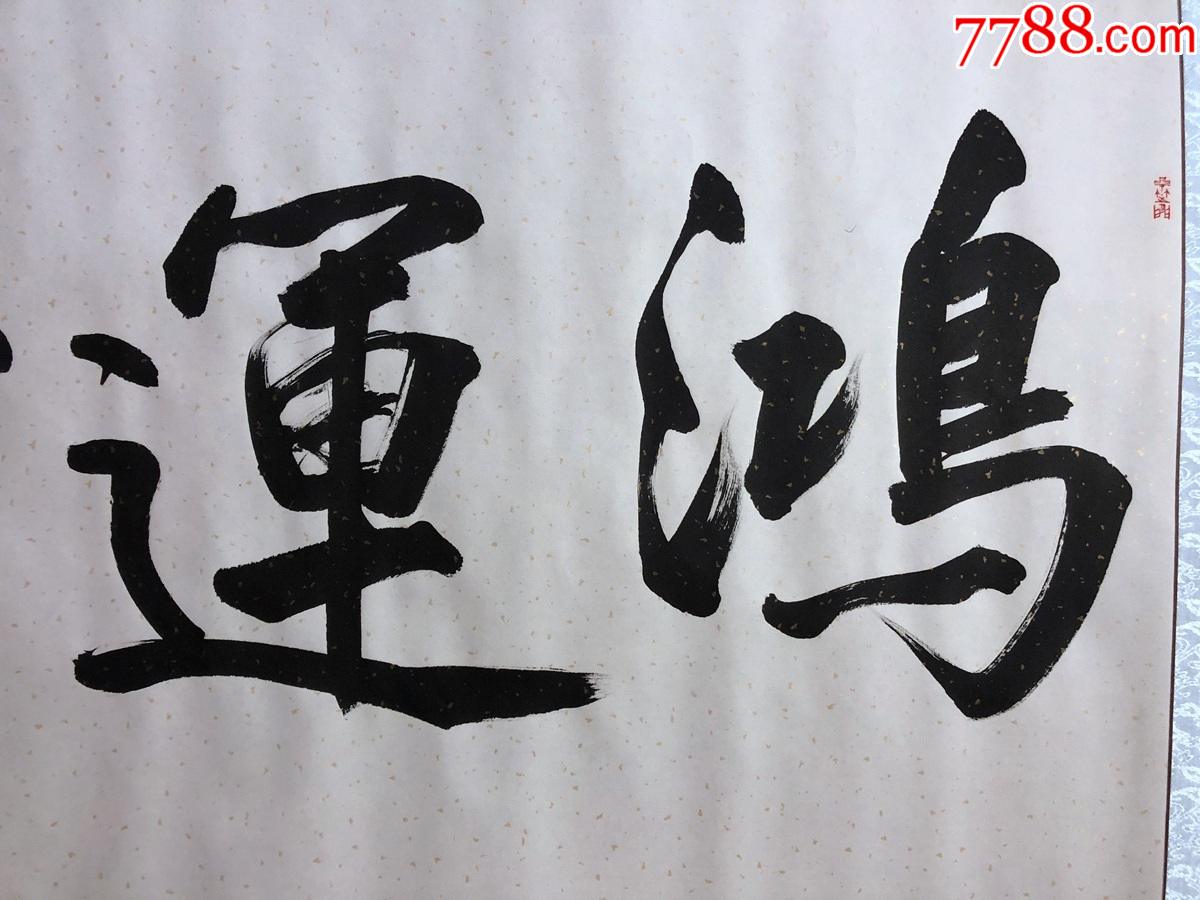 7788.com
鴻運